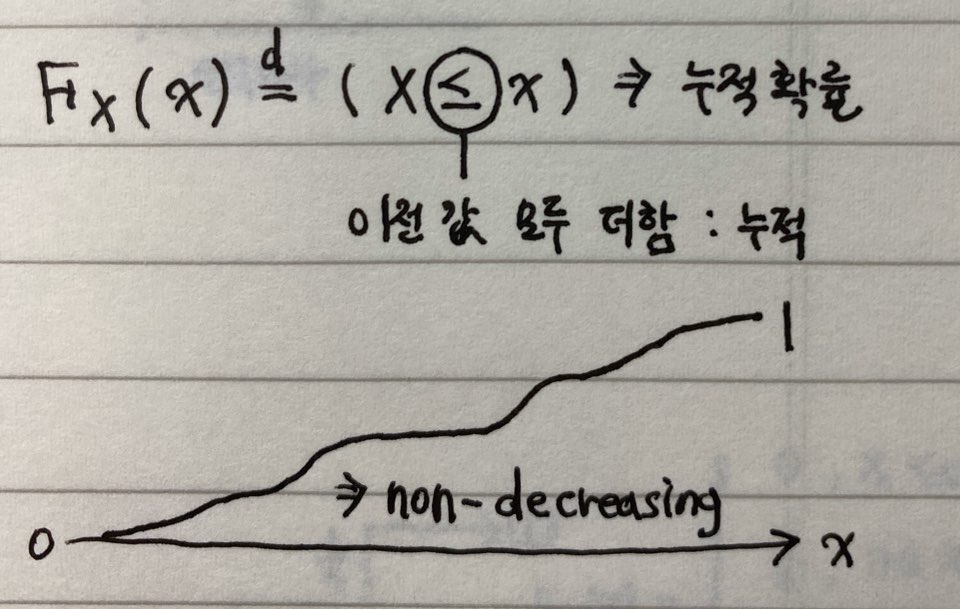 F_X(x) \overset{d}{=} (X ≤ x) ⇒ 누적확률
이전 값 모두 더함 : 누적
1
⇒ non-decreasing
0 x